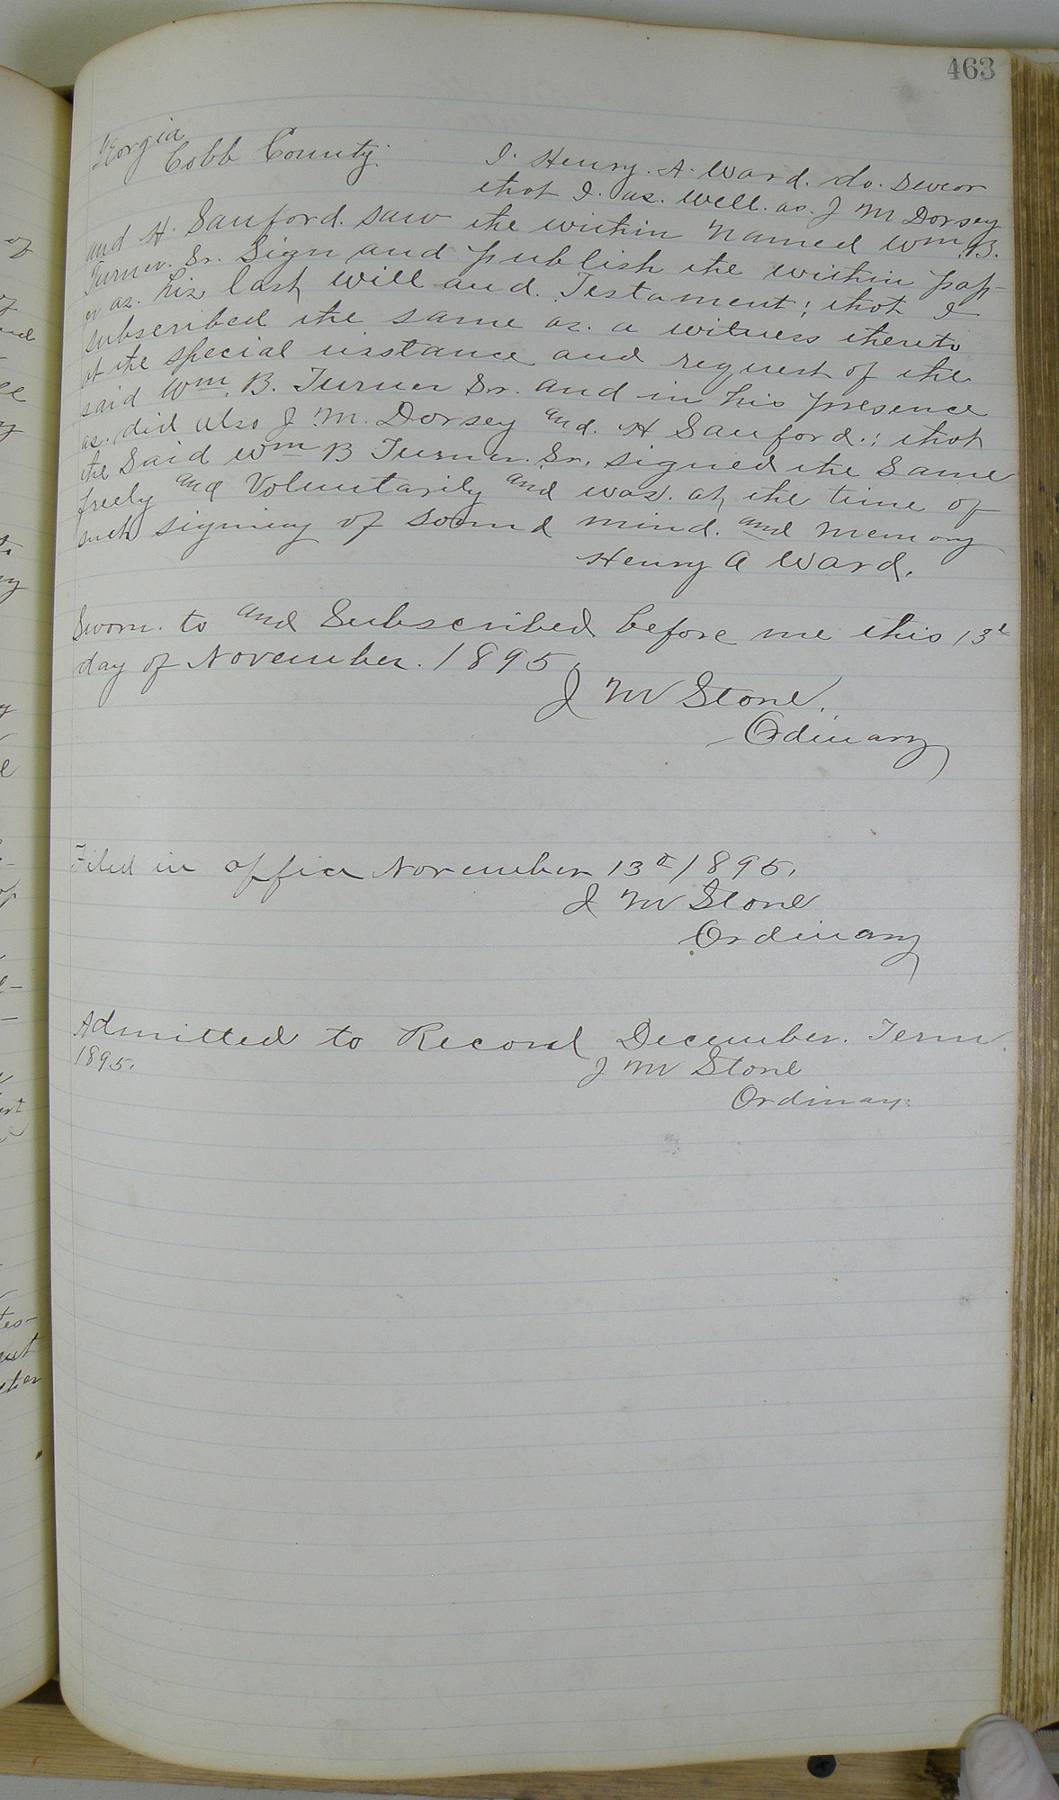 463
Georgia
Cobb County: I. Henry. A. Ward. do. Swear
that I. as. well. as. J M Dorsey
and H. Sanford. saw the within named Wm. B.
Turner. Sr. Sign and publish the within pap-
er as. his last will and. Testament; that I
subscribed the same as. a witness thereto
at the special instance and request of the
said Wm. B. Turner Sr. and in his presence
as. did also J. M. Dorsey and. H Sanford.; that
the Said Wm B Turner. Sr. signed the Same
freely and Voluntarily and was. at the time of
such signing of sound mind. and memory
Henry A Ward.
Sworn. to and Subscribed before me this 13th
day of November. 1895.
J M Stone.
Odinary
Filed in office November 13th 1895.
J M Stone
Ordinary
Admitted to Record December. Term.
1895.
J M Stone
Ordinary.